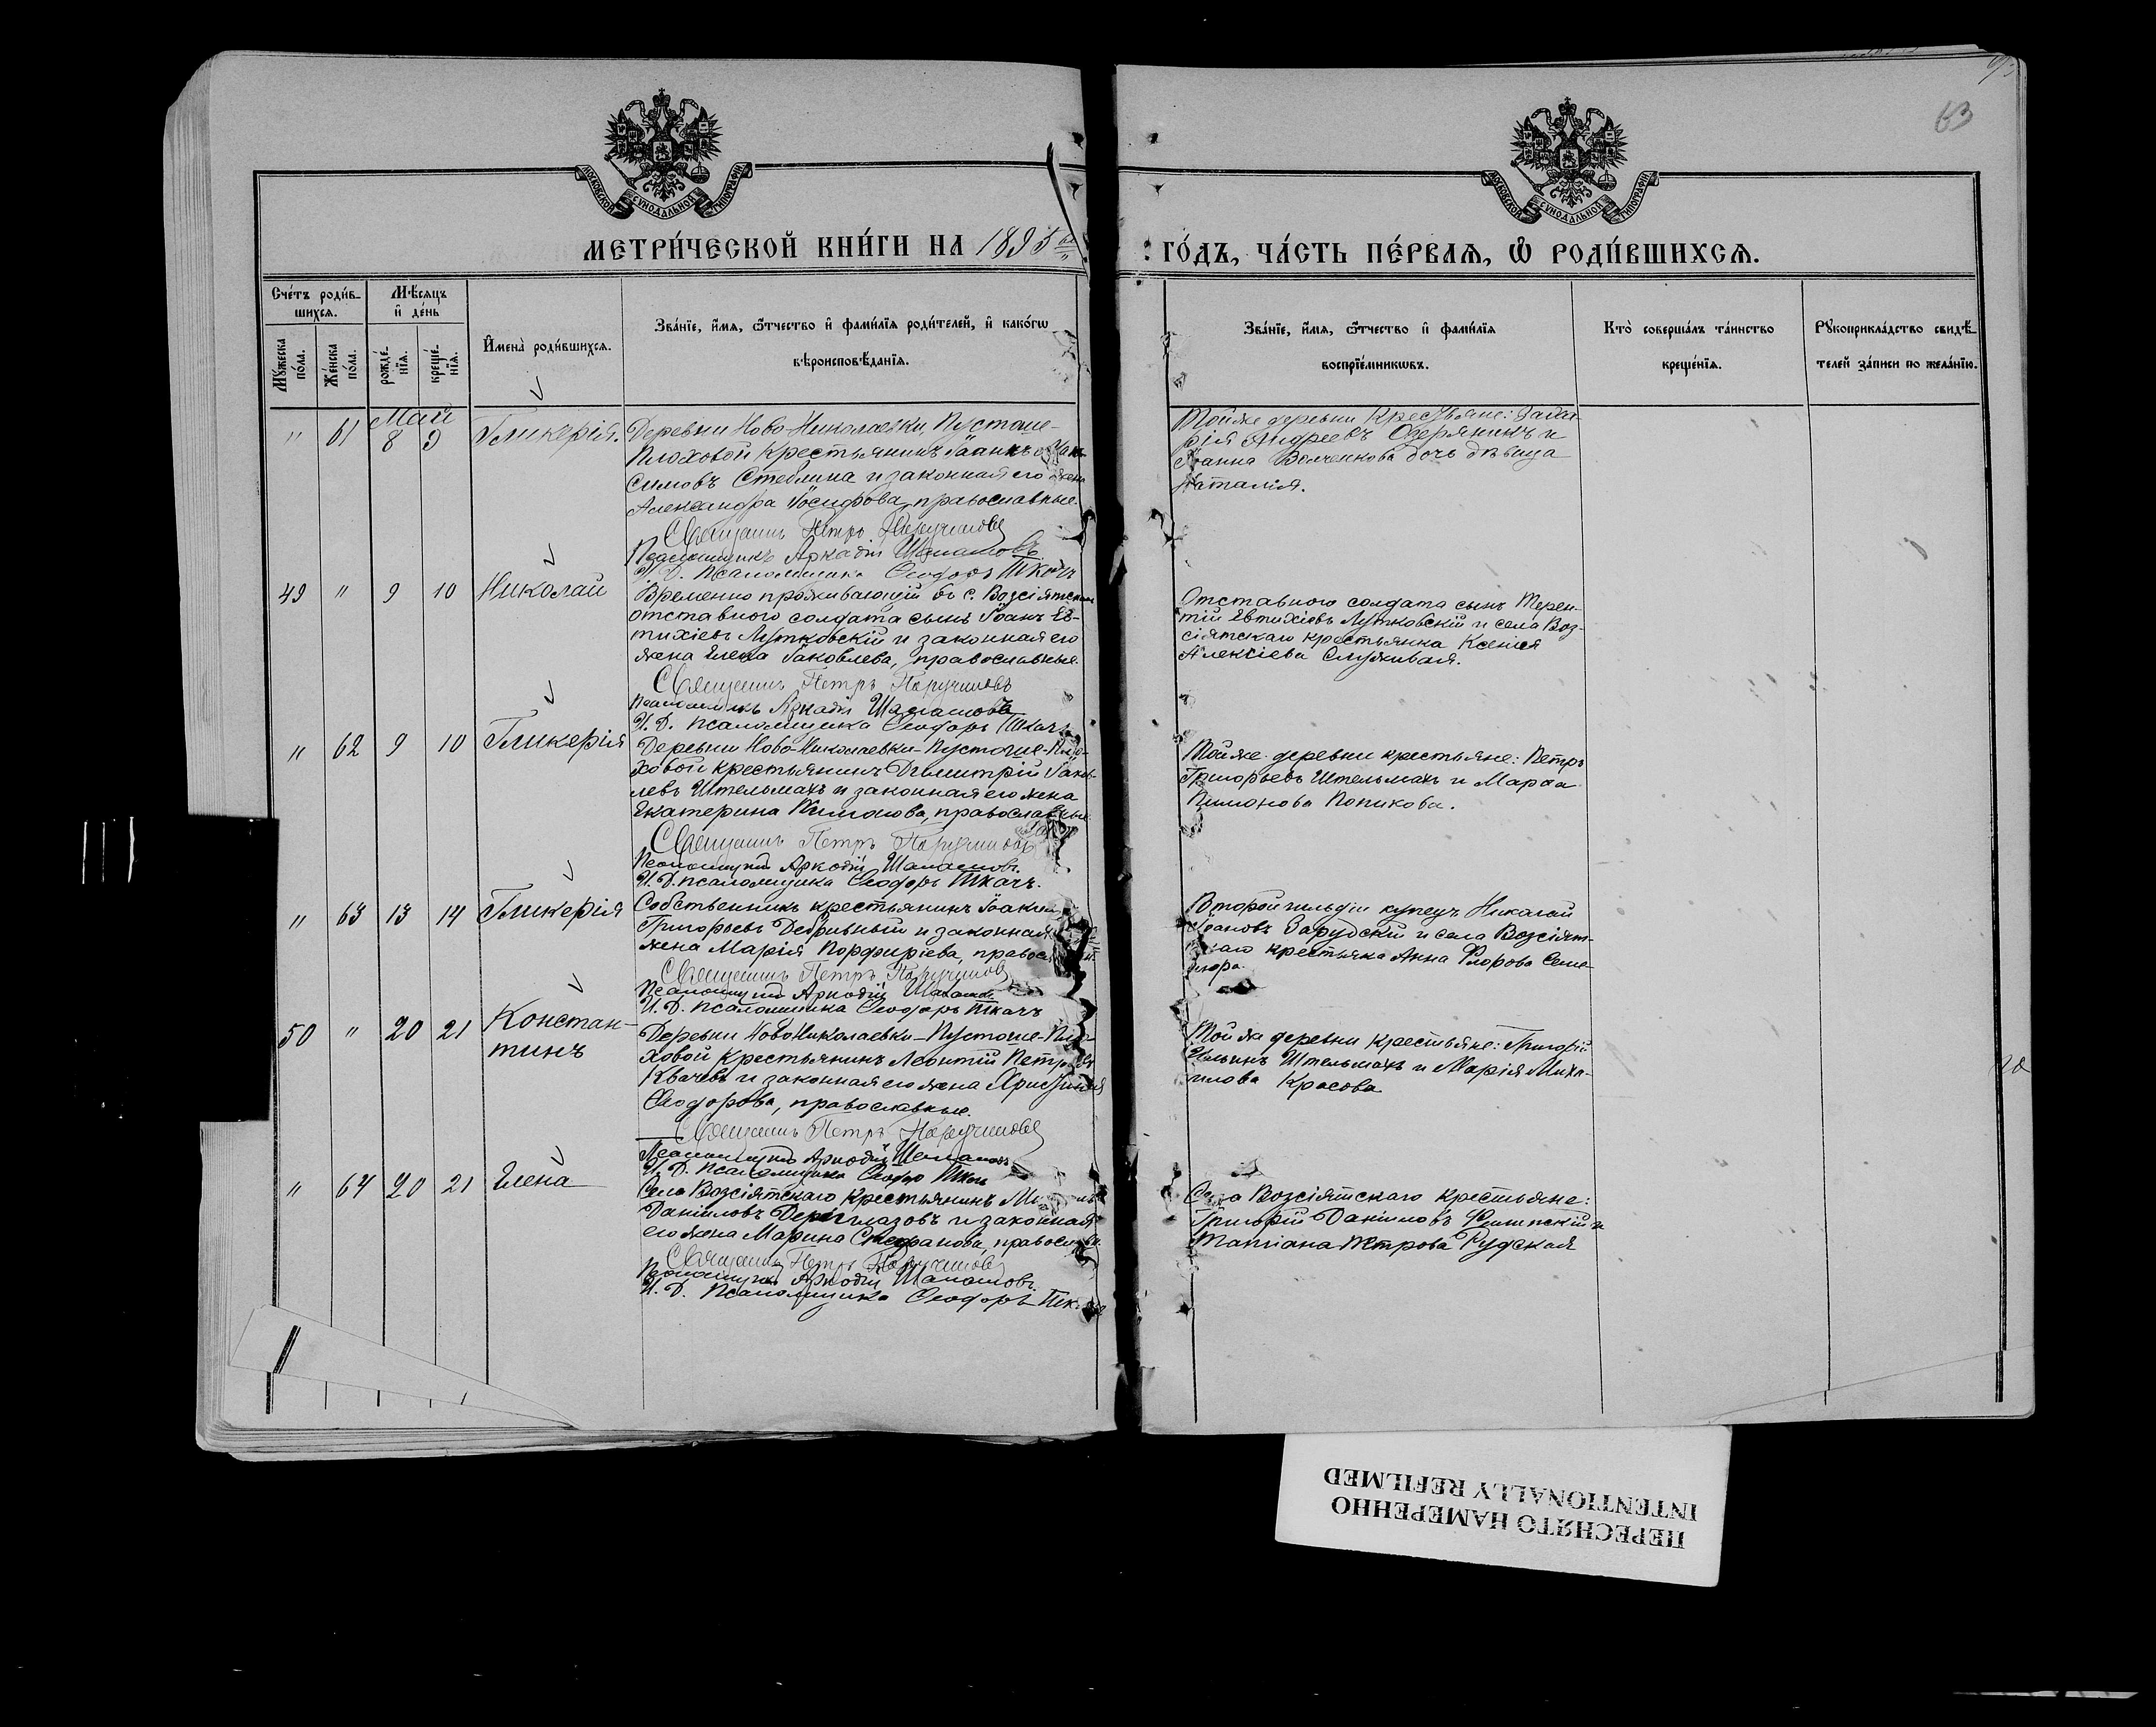 63
МОСКОВСКОЙ СУНОДАЛЬНОЙ ТИПОГРАФІИ
МОСКОВСКОЙ СУНОДАЛЬНОЙ ТИПОГРАФІИ
МЕТРИ́ЧЕСКОЙ КНИ́ГИ НА 1895
ГО́ДЪ, ЧА́СТЬ ПЕ́РВАЯ, Ѿ РОДИ́ВШИХСЯ.
Сче́тъ роди́в-
шихся.
Мѣ́сяцъ
и҆ де́нь
Мꙋ́жеска по́ла.
Же́нска по́ла.
рожде́-
нїя.
креще́-
нїя.
И҆мена̀ роди́вшихся.
Зва́нїе, и҆́мя, ѻ҆́тчество и҆ фами́лїя роди́телей, и҆ како́гѡ
вѣроисповѣ́данїя.
Зва́нїе, и҆́мя, ѻ҆́тчество и҆ фами́лїя
воспрїе́мникѡвъ.
Кто̀ соверша́лъ та́инство
креще́нїя.
Рꙋкоприкла́дство свидѣ́-
телей за́писи по жела́нїю.
Май
" 61 8 9 Гликерія.
Деревни Ново-Николаевки, Пустоше-
Плоховой крестьянинъ Іоаннъ Мак-
симовъ Стеблина и законная его жена
Александра Іосифова, православные.
Священникъ Петръ
Псаломщикъ Аркадій
И. Д. псаломщика Ѳеодоръ Ткачъ
Той же деревни крестьяне: Заха-
рія Андреевъ Озерянинъ и
Іоанна Волченкова дочь дѣвица
Наталія.
49 " 9 10 Николай
Временно проживающій въ с. Возсіятскомъ
отставного солдата сынъ Іоаннъ Ев-
тихіевъ Лутковскій и законная его
жена Елена Іаковлева, православные.
Священникъ Петръ
Псаломщикъ Аркадій
И. Д. псаломщика Ѳеодоръ Ткачъ
Отставного солдата сынъ Терен-
тій Евтихіевъ Лутковскій и села Воз-
сіятскаго крестьянка Ксенія
Алексіева Служивая.
" 62 9 10 Гликерія
Деревни Ново-Николаевки-Пустоше-Пло-
ховой крестьянинъ Димитрій Іаков-
левъ Штельмахъ и законная его жена
Екатерина Пимонова, православные
Священникъ Петръ
Псаломщикъ Аркадій
И. Д. псаломщика Ѳеодоръ Ткачъ.
Той же деревни крестьяне: Петръ
Григорьевъ Штельмахъ и Марѳа
Пимонова Попикова.
" 63 13 14 Гликерія
Собственникъ крестьянинъ Іоакимъ
Григорьевъ Дебривный и законная
жена Марія Порфиріева,
Священникъ Петръ
Псаломщикъ Аркадій
И. Д. псаломщика Ѳеодоръ Ткачъ
Второй гильдіи купецъ Николай
Іоановъ Зарудскій и села Возсіят-
скаго крестьянка Анна Флорова Семе-
50 " 20 21 Констан-
тинъ
Деревни НовоНиколаевки-Пустоше-Пло-
ховой крестьянинъ Леонтій Петровъ
Квачевъ и законная его жена Христина
Ѳеодорова, православные.
Священникъ Петръ
Псаломщикъ Аркадій
И. Д. псаломщика Ѳеодоръ Ткачъ
Той же деревни крестьяне: Григорій
Штельмахъ и Марія Миха-
илова Красова
" 64 20 21 Елена
Села Возсіятскаго крестьянинъ
Даніиловъ Деріглазовъ и законная
его жена Марина Стефанова,
Священникъ Петръ
Псаломщикъ Аркадій
И. Д. Псаломщика Ѳеодоръ
Села Возсіятскаго крестьяне:
Григорій Даніиловъ и
Татіана Петрова Рудская
ПЕРЕСНЯТО НАМЕРЕННО
INTENTIONALLY REFILMED